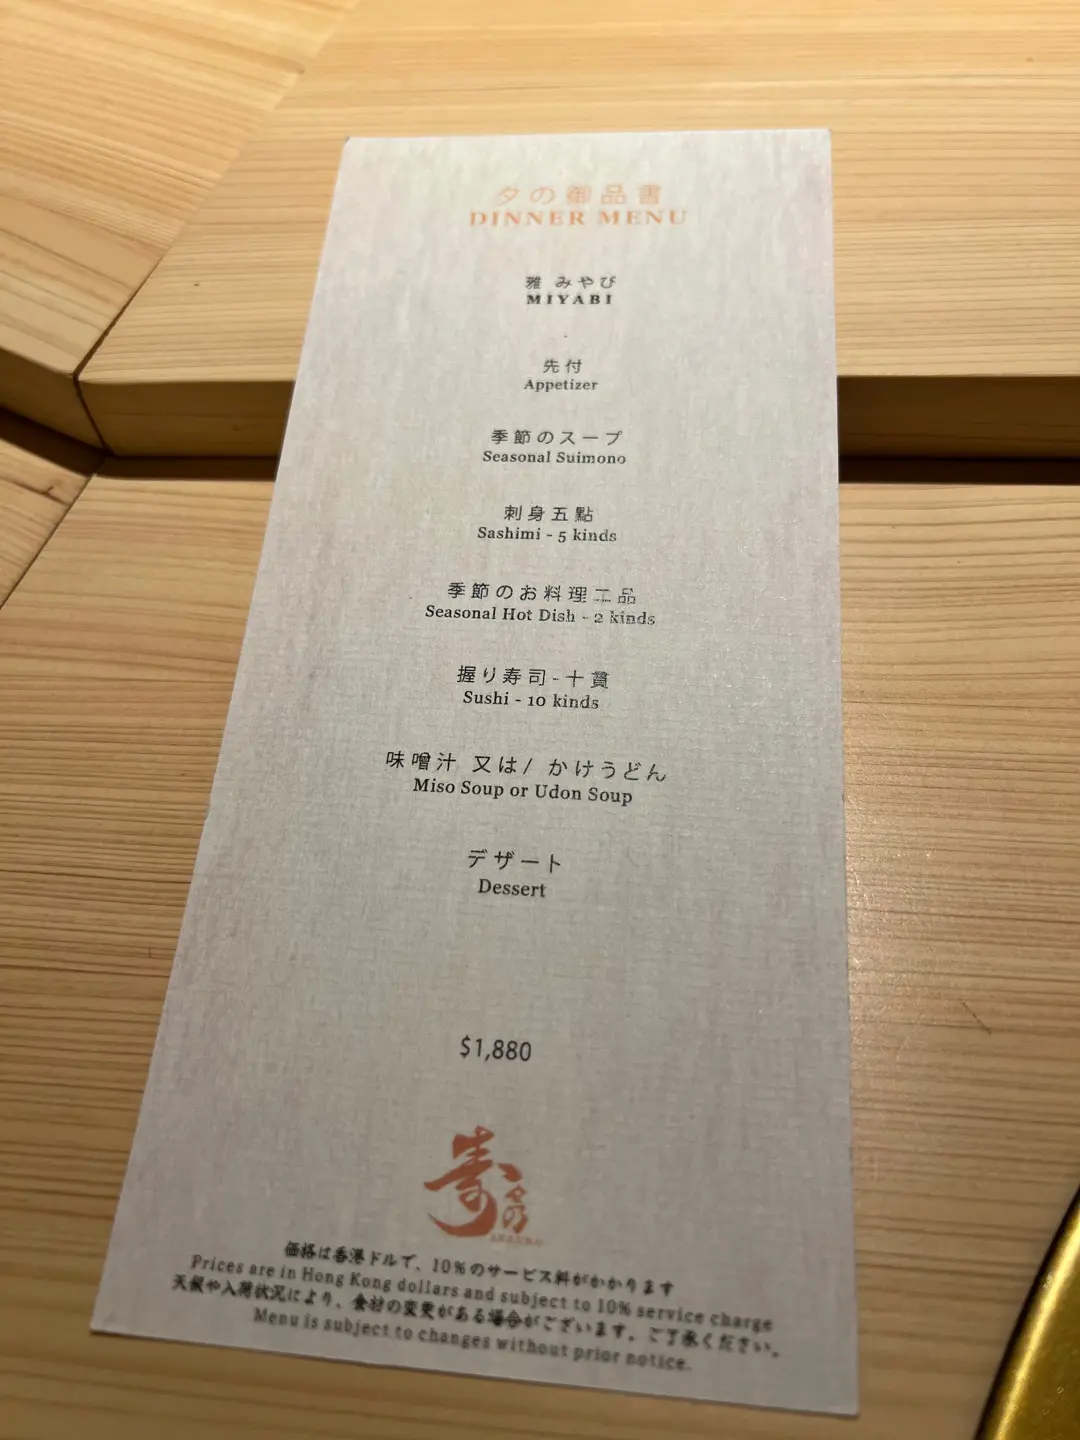 夕の御品書
DINNER MENU
雅 みやび
MIYABI
先付
Appetizer
季節のスープ
Seasonal Suimono
刺身五點
Sashimi - 5 kinds
季節のお料理二品
Seasonal Hot Dish - 2 kinds
握り寿司-十貫
Sushi - 10 kinds
味噌汁 又は/ かけうどん
Miso Soup or Udon Soup
デザート
Dessert
$1,880
寿
価格は香港ドルで、10%のサービス料がかかります
Prices are in Hong Kong dollars and subject to 10% service charge
天候や入荷状況により、食材の変更がある場合がございます。ご了承ください。
Menu is subject to changes without prior notice.